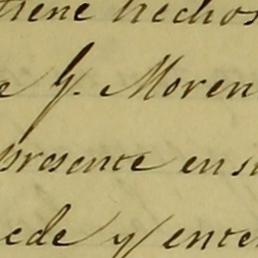 tiene hechos
e G. Moren
presente en su
ede y enter